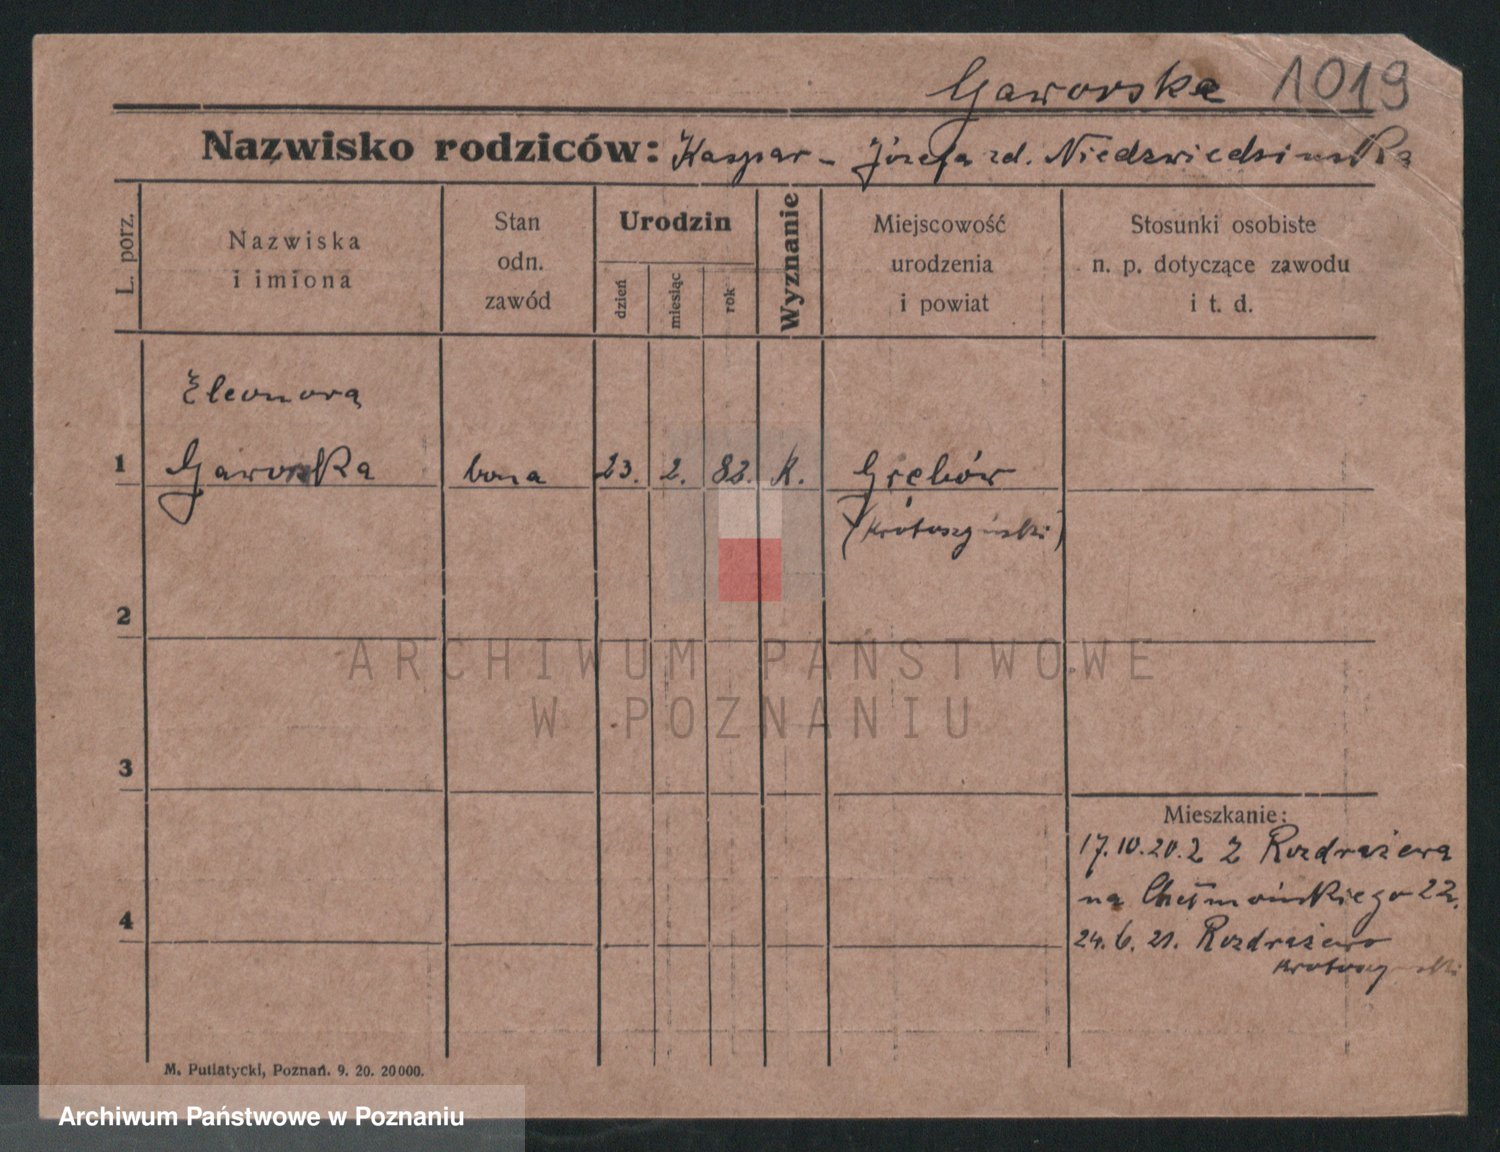 Gaworska 1019
Nazwisko rodziców: Kaspar - Józefa zd. Niedzwiedzinska
L. porz.
Nazwiska
i imiona
Stan
odn.
zawód
Urodzin
dzień
miesiąc
rok
Wyznanie
Miejscowość
urodzenia
i powiat
Stosunki osobiste
n. p. dotyczące zawodu
i t. d.
Eleonora
1 Gaworska bona 23. 2. 82. K. Grębów
(Krotoszyński)
2
ARCHIWUM PAŃSTWOWE
W POZNANIU
3
Mieszkanie:
17.10.20. z Rozdrażewa
na Chełmońskiego 22.
4
24.6.21. Rozdrażewo
Krotoszyński
M. Putiatycki, Poznań. 9. 20. 20000.
Archiwum Państwowe w Poznaniu